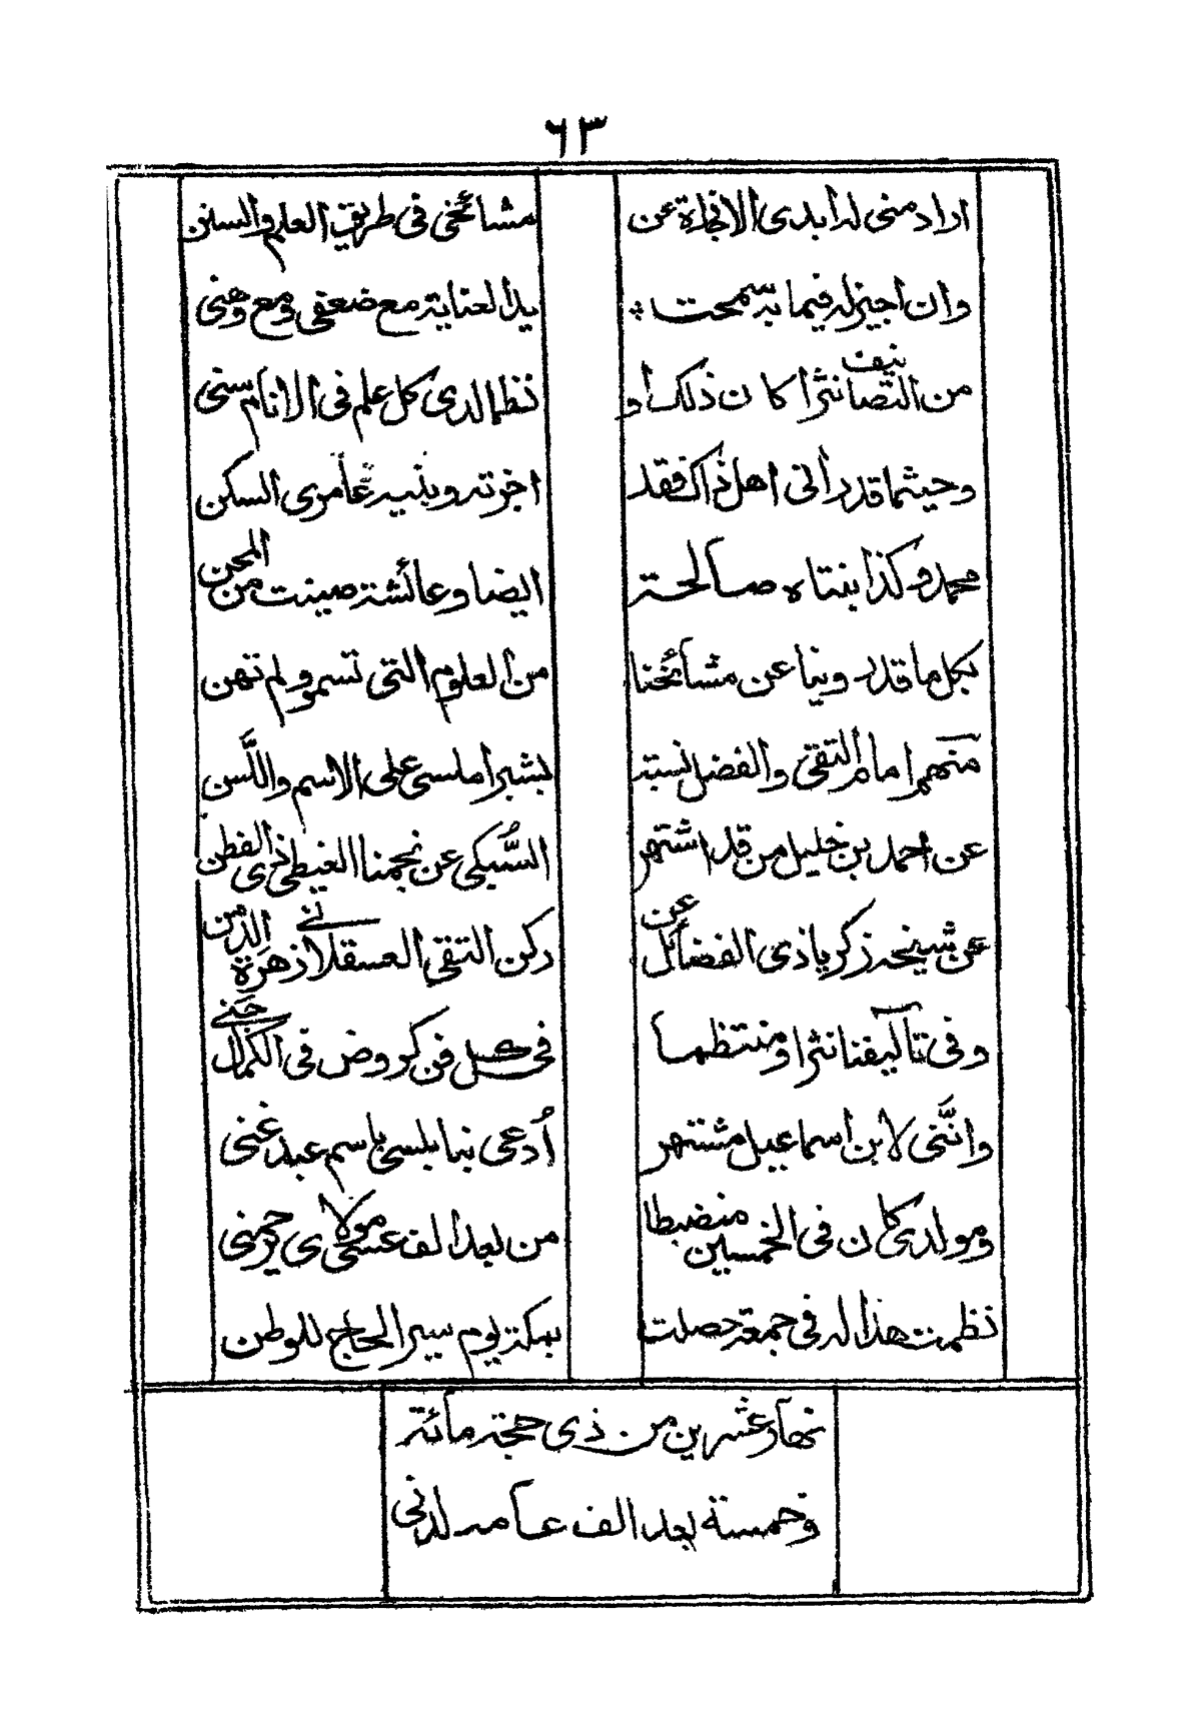 ٦٣
اراد منى له ابدى الاجازة عن مشائخى فى طريق العلم والسنن
وان اجيز له فيما به سمحت يد العناية مع ضعفى ومع وهنى
من التصانيف نثرا كان ذلك او نظما لدى كل علم فى الانام سنى
وحيثما قد رانى اهل ذاك فقد اجزته وبنيه عامرى السكن
محمد وكذا بنتاه صالحة ايضا وعائشة صينت من المحن
بكل ما قد روينا عن مشائخنا من العلوم التى تسمو ولم تهن
منهم امام التقى والفضل نسبته بشبراملسى على الاسم واللسن
عن احمد بن خليل من قد اشتهر السُّبكى عن نجمنا الغيطى ذى الفطن
عن شيخه زكريا ذى الفضائل عن ركن التقى العسقلانى زهرة الزمن
وفى تآليفنا نثرا ومنتظما فى كل فن كروض فى الكمال جنى
واننى لابن اسماعيل مشتهر اُدعى بنابلسى باسم عبد غنى
ومولدى كان فى الخمسين منضبطا من بعد الف عسى مولاى يرحمنى
نظمت هذا له فى جمعة حصلت بمكة يوم سير الحاج للوطن
نهار عشرين من ذى حجة مائة
وخمسة بعد الف عامه لدنى